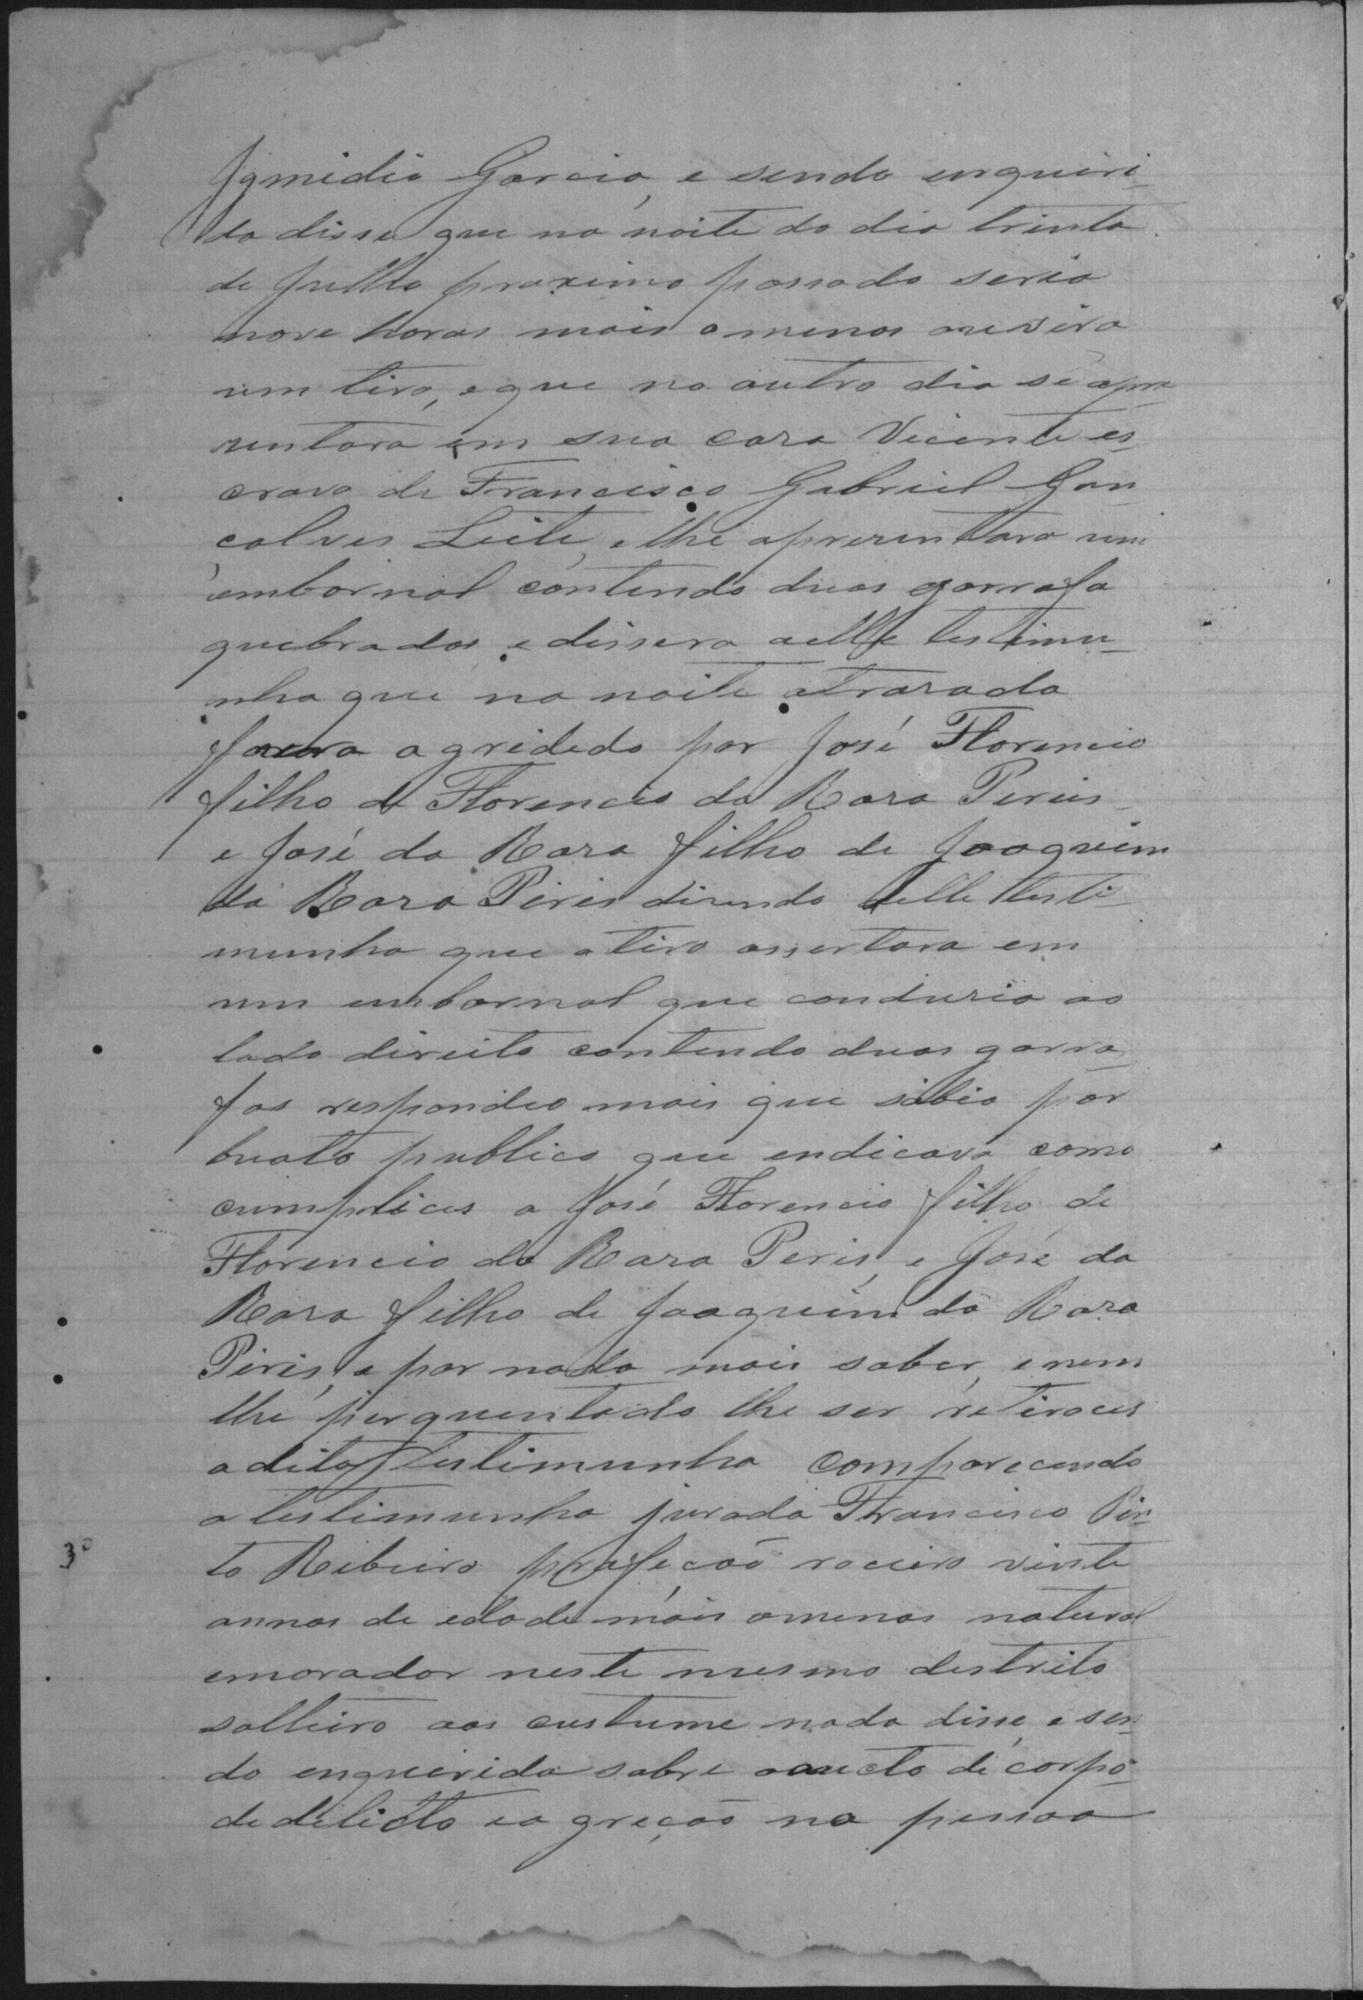 Igmidio Garcia, e sendo enqueri-
do disse que na noite do dia trinta
de Julho proximo passado seria
nove horas mais o menos ouvira
um tiro, e que no outro dia se apre
zentara em sua caza Vicente es
cravo de Francisco Gabriel Gon
calves Leite, e lhe aprezentara um
embornal contendo duas garrafa
quebradas, e dissera a elle testimu-
nha que na noite atrazada
fora agridido por José Florencio
filho de Florencio da Roza Peris
e José da Roza filho de Joaquim
da Roza Piris dizendo elle testi-
munha que o tiro assertara em
um embornal que conduzia ao
lado direito contendo duas garra
fas respondeo mais que sabia por
buato publico que endicava como
cumplices a José Florencio filho de
Florencio da Roza Peris, e José da
Roza filho de Joaquim da Roza
Piris, e por nada mais saber, e nem
lhe perguentado lhe ser retirace
a dita testimunha comparecendo
3º a testimunha jurada Francisco Pin-
to Ribeiro profeção roceiro vinte
annos de edade mais omenos natural
emorador neste mesmo destrito
solteiro aos custume nada disse, e sen
do enquerido sobre oaucto de corpo
dedelicto ea greção na pessoa